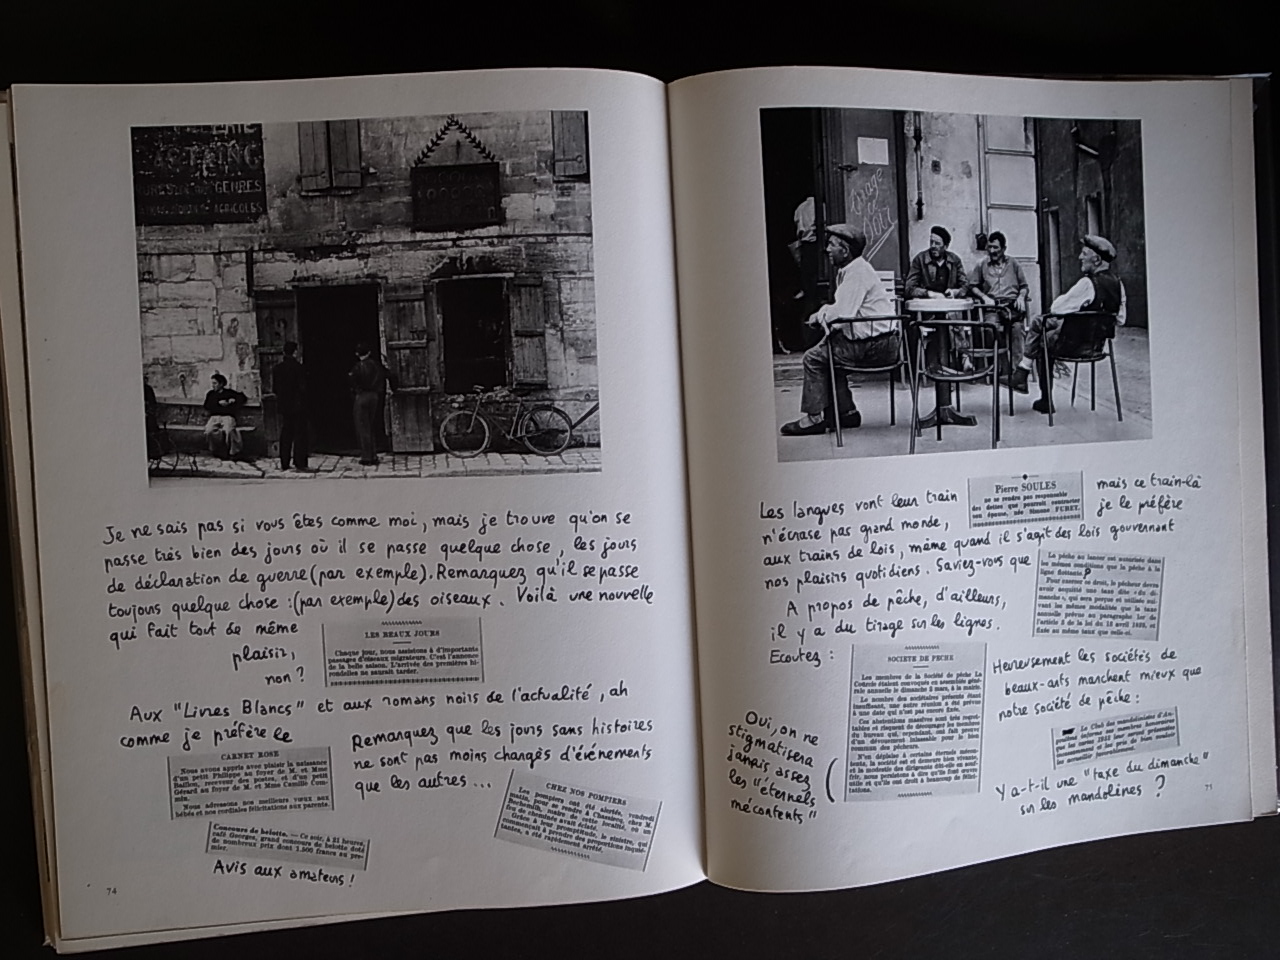 GENRES
AGRICOLES
Je ne sais pas si vous êtes comme moi, mais je trouve qu'on se
passe très bien des jours où il se passe quelque chose, les jours
de déclaration de guerre (par exemple). Remarquez qu'il se passe
toujours quelque chose : (par exemple) des oiseaux. Voilà une nouvelle
qui fait tout de même
plaisir,
non ?
LES BEAUX JOURS
Chaque jour, nous assistons à d'importants
passages d'oiseaux migrateurs. C'est l'annonce
de la belle saison. L'arrivée des premières hi-
rondelles ne saurait tarder.
Aux "Livres Blancs" et aux romans noirs de l'actualité, ah
comme je préfère le
CARNET ROSE
Nous avons appris avec plaisir la naissance
d'un petit Philippe au foyer de M. et Mme
Baillon, receveur des postes, et d'un petit
Gérard au foyer de M. et Mme Camille Cou-
Nous adressons nos meilleurs vœux aux
bébés et nos cordiales félicitations aux parents.
Concours de belotte. — Ce soir, à 21 heures,
café Georges, grand concours de belotte doté
de nombreux prix dont 1.500 francs au pre-
mier.
Avis aux amateurs !
Remarquez que les jours sans histoires
ne sont pas moins chargés d'événements
que les autres ...
CHEZ NOS POMPIERS
Les pompiers ont été alertés, vendredi
matin, pour se rendre à Chassiers, chez M.
maire de cette localité, où un
feu de cheminée avait éclaté.
Grâce à leur promptitude, le sinistre, qui
commençait à prendre des proportions inquié-
tantes, a été rapidement arrêté.
74
tirage
ce
soir
Les langues vont leur train
Pierre SOULES
ne se rendra pas responsable
des dettes que pourrait contracter
son épouse, née Simone FURET.
mais ce train-là
n'écrase pas grand monde,
je le préfère
aux trains de lois, même quand il s'agit des lois gouvernant
nos plaisirs quotidiens. Saviez-vous que
La pêche au lancer est autorisée dans
les mêmes conditions que la pêche à la
ligne flottante ?
Pour exercer ce droit, le pêcheur devra
avoir acquitté une taxe dite « du di-
manche », qui sera perçue et utilisée sui-
vant les mêmes modalités que la taxe
annuelle prévue au paragraphe 1er de
l'article 2 de la loi du 12 avril 1892, et
fixée au même taux que celle-ci.
A propos de pêche, d'ailleurs,
il y a du tirage sur les lignes.
Ecoutez :
SOCIETE DE PECHE
Les membres de la Société de pêche La
étaient convoqués en assemblée géné-
rale annuelle le dimanche 2 mars, à la mairie.
Le nombre des sociétaires présents étant
insuffisant, une autre réunion a été prévue
à une date qui n'est pas encore fixée.
Ces abstentions massives sont très regret-
tables et risquent de décourager les membres
du bureau qui, cependant, ont fait preuve
d'un dévouement inlassable pour le bien
commun des pêcheurs.
N'en déplaise à certains éternels mécon-
tents, la société est et demeure bien vivante,
et la modestie des dirigeants dût-elle en souf-
frir, nous persistons à dire qu'ils font œuvre
utile et qu'ils ont droit à beaucoup de
Oui, on ne
stigmatisera
jamais assez
les "éternels
mécontents"
Heureusement les sociétés de
beaux-arts marchent mieux que
notre société de pêche :
Le Club des mandolinistes
Y a-t-il une "taxe du dimanche"
sur les mandolines ?